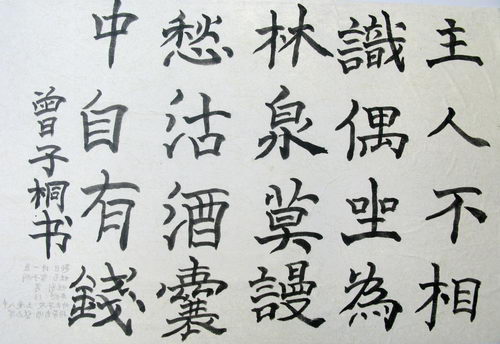 主人不相
識偶坐為
林泉莫謾
愁沽酒囊
中自有錢
曾子桐书